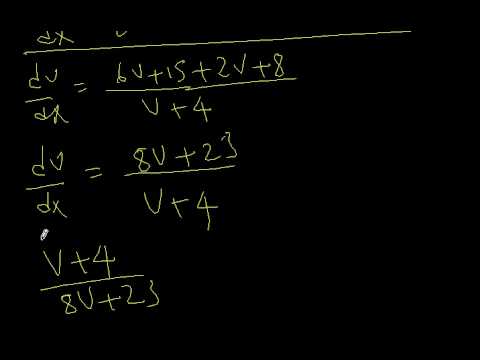 dx
dv/dx = (6V+15+2V+8)/(V+4)
dv/dx = (8V+23)/(V+4)
(V+4)/(8V+23)